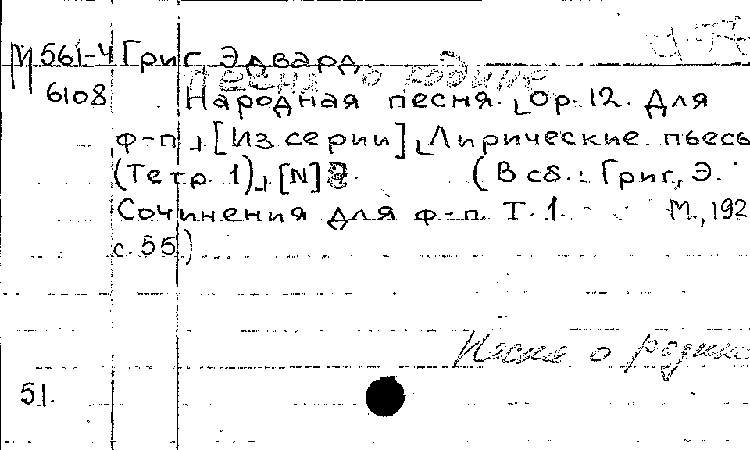 М 561-4 Григ, Эдвард
6108 Песня о родине
Народная песня. Ор. 12. Для
ф-п. [Из серии] Лирические пьесы
(Тетр. 1). [N] 8. (В сб.: Григ, Э.
Сочинения для ф-п. Т. 1. М., 192
с. 55)
Песня о родине
51.